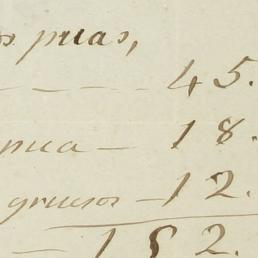 os puas,
- - - - 45.
pua - 18.
gruesos - 12.
- 152.